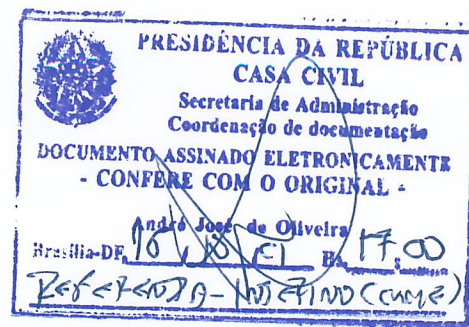 PRESIDÊNCIA DA REPÚBLICA
CASA CIVIL
Secretaria de Administração
Coordenação de documentação
DOCUMENTO ASSINADO ELETRONICAMENTE
- CONFERE COM O ORIGINAL -
André José de Oliveira
Brasília-DF, Hs 17:00
REFERENDA - INTERINO